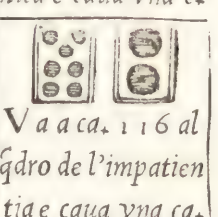 V a a ca. 116 al
q̃dro de l'impatien
tia e caua vna ca.